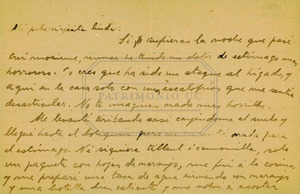 Mi pobrecita linda:
Si supieras la noche que pasé
casi muriéndome, nunca he tenido un dolor de estómago más
horroroso. Yo creo que ha sido un ataque al hígado, y
aquí en la casa solo con mis escalofríos que me sentía
desarticular. No te imaginas nada más horrible.
Me levanté tiritando casi cayéndome al suelo y
llegué hasta el para el estómago. Ni siquiera tilo ni camomilla, solo
un paquete con hojas de naranjo, me fui a la cocina
y me preparé una taza de agua hirviendo con naranjo
y una botella bien caliente y me volví a acostar
PATRIMONIO DE